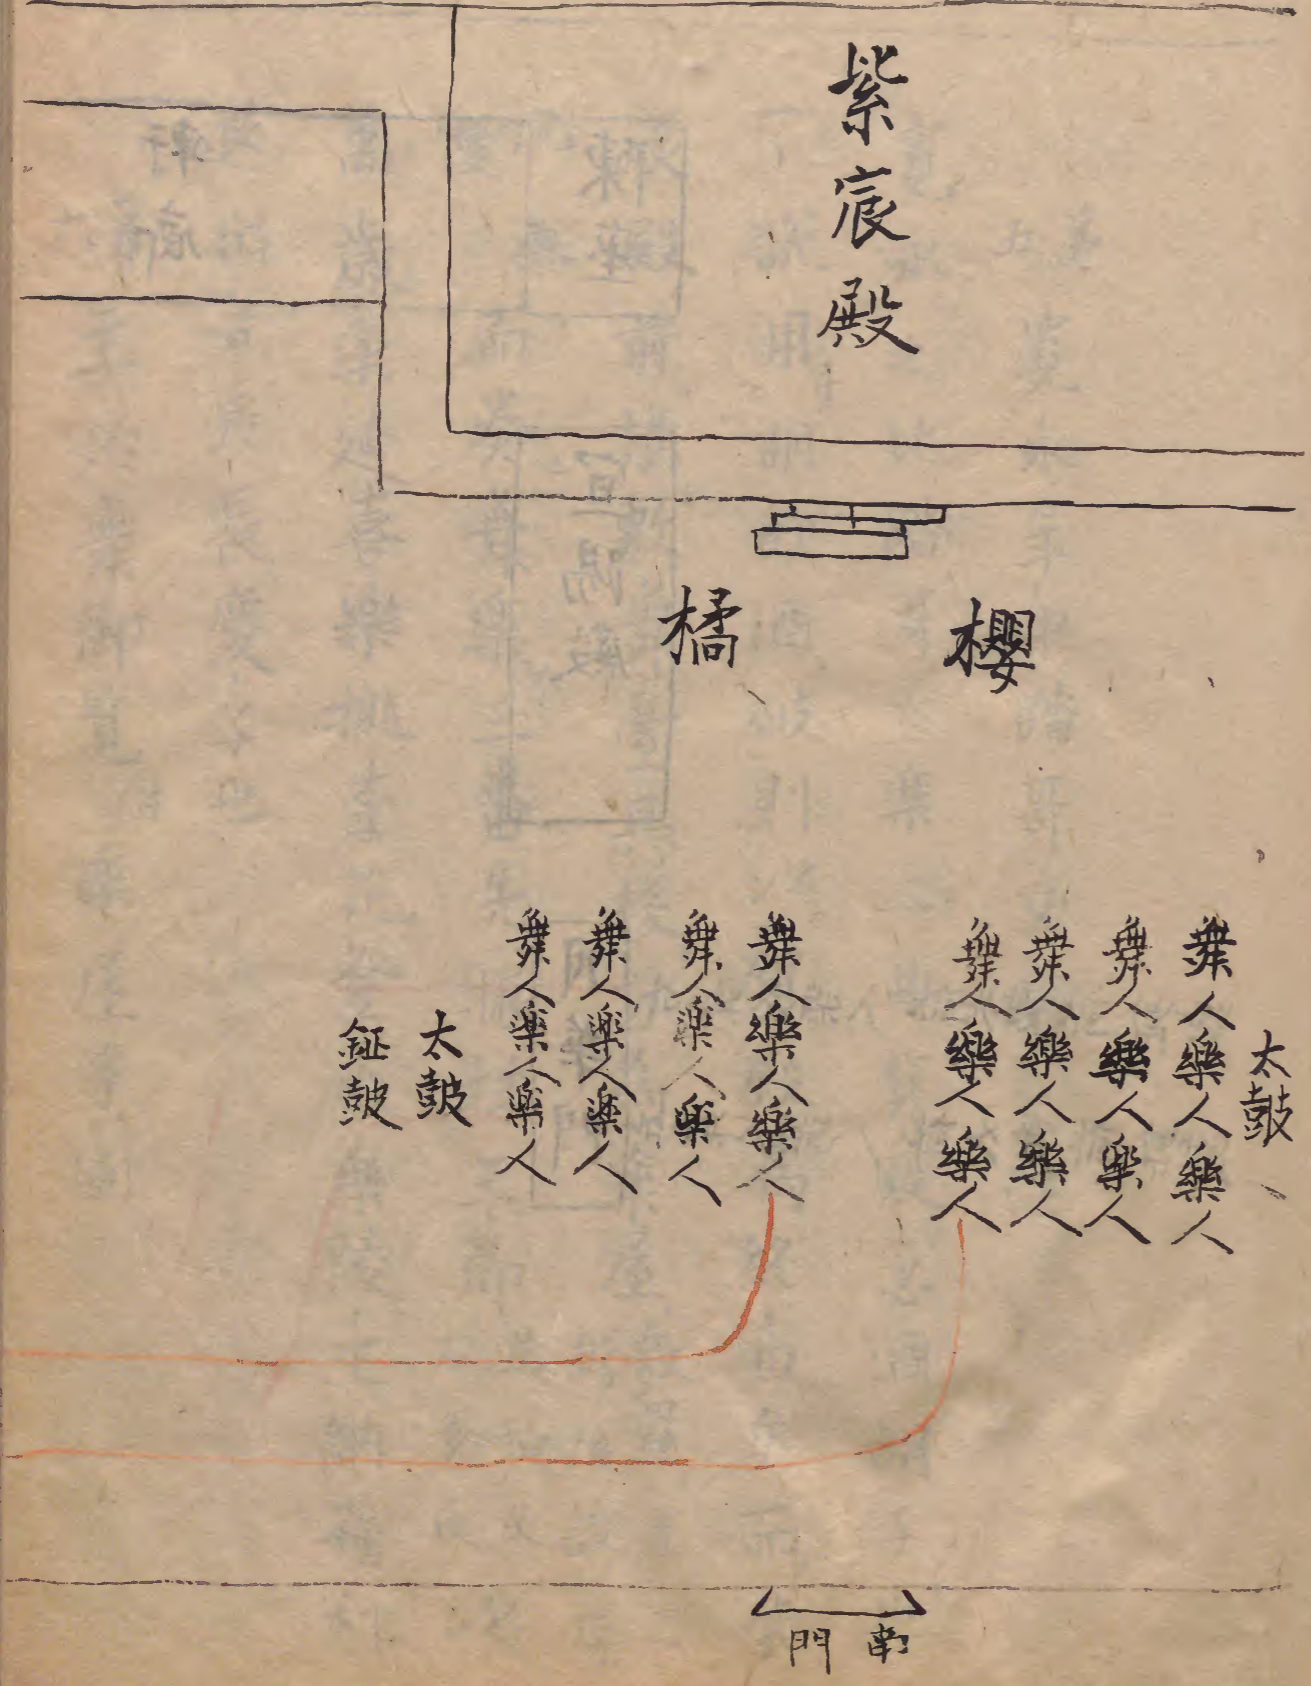 紫宸殿
櫻
橘
太鼓
舞人樂人樂人
舞人樂人樂人
舞人樂人樂人
舞人樂人樂人
舞人樂人樂人
舞人樂人樂人
舞人樂人樂人
舞人樂人樂人
太鼓
鉦鼓
南門